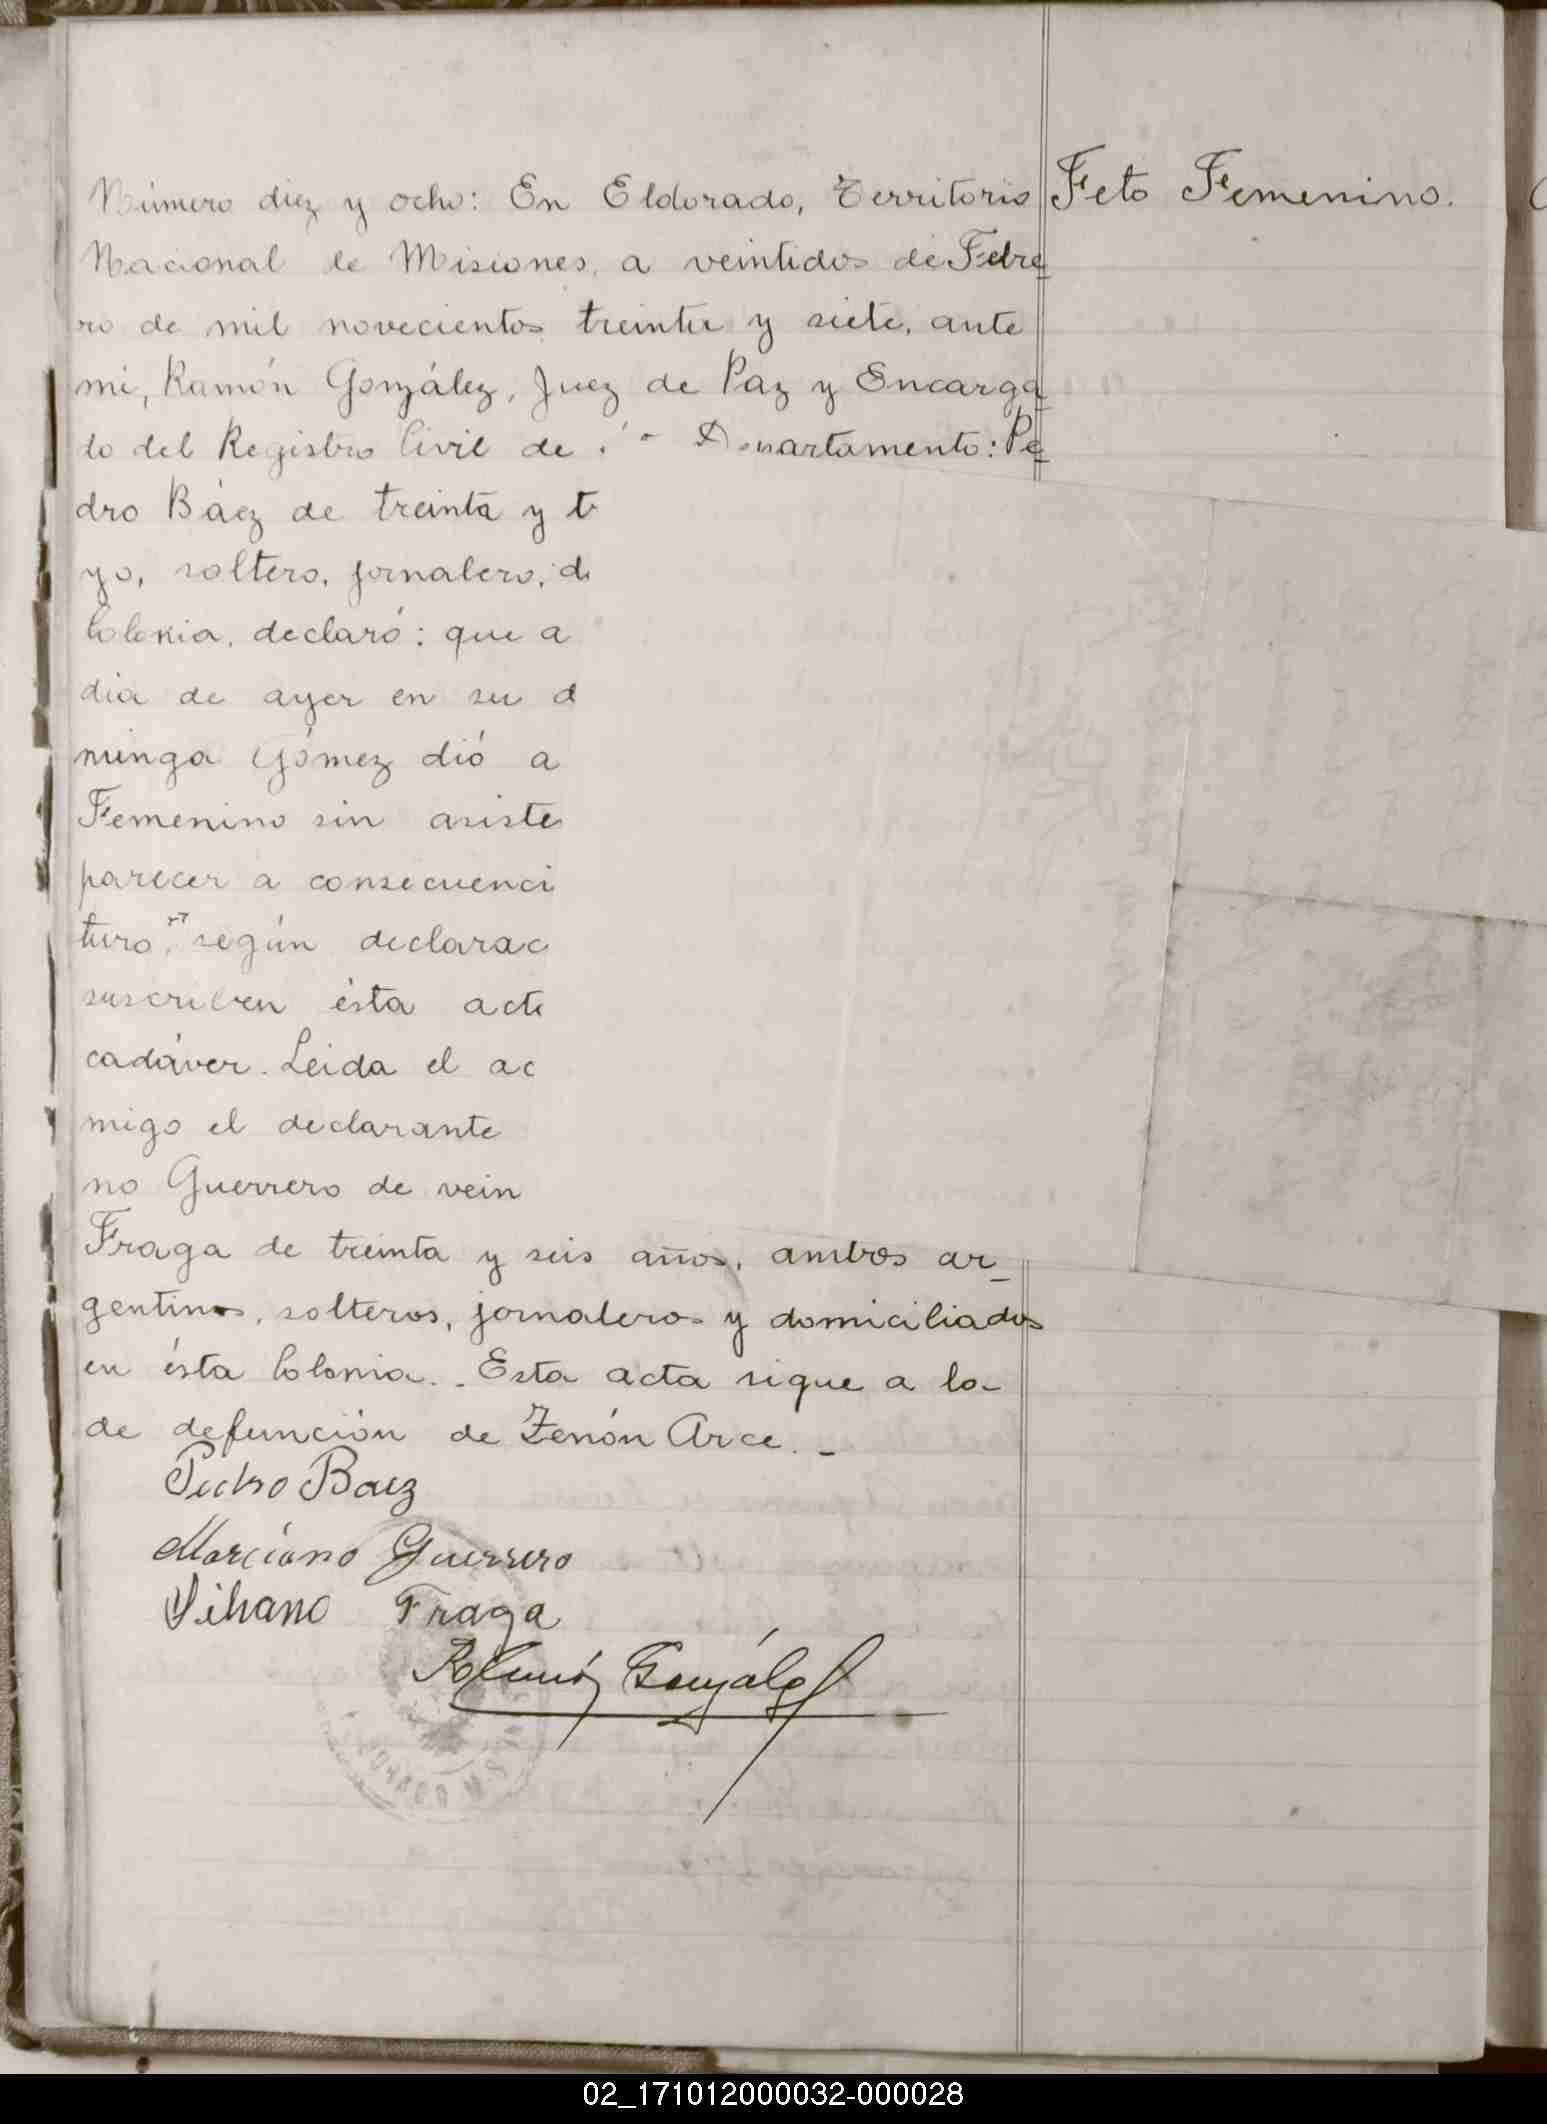 Número diez y ocho: En Eldorado, Territorio
Feto Femenino.
Nacional de Misiones, a veintidos de Febre
ro de mil novecientos treinta y siete, ante
mi, Ramón González, Juez de Paz y Encarga
do del Registro Civil de Departamento: Pe
dro Báez de treinta y t
yo, soltero, jornalero, d
Colonia, declaró: que a
dia de ayer en su d
minga Gómez dió a
Femenino sin asiste
parecer a consecuenci
turo, según declarac
suscriben ésta act
cadáver. Leida el ac
migo el declarante
no Guerrero de vein
Fraga de treinta y seis años, ambos ar_
gentinos, solteros, jornaleros y domiciliados
en ésta Colonia._ Esta acta sigue a la
de defunción de Zenón Arce._
Pedro Baez
Marciano Guerrero
Fraga
Ramón González
02_171012000032-000028